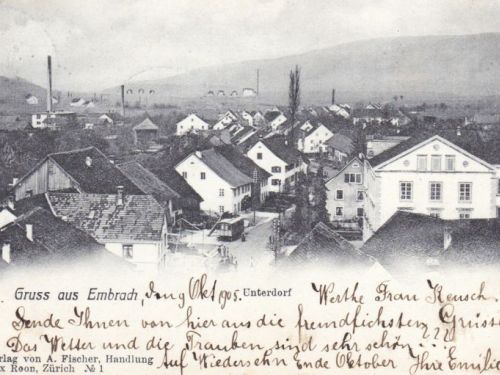 Gruss aus Embrach, den 9 Okt 1905. Unterdorf Werthe Frau
Sende Ihnen von hier aus die freundlichsten Grüsse
Das Wetter und die Trauben sind sehr schön
Verlag von A. Fischer, Handlung
Auf Wiedersehn Ende Oktober Ihre Emilie
x Roon, Zürich № 1